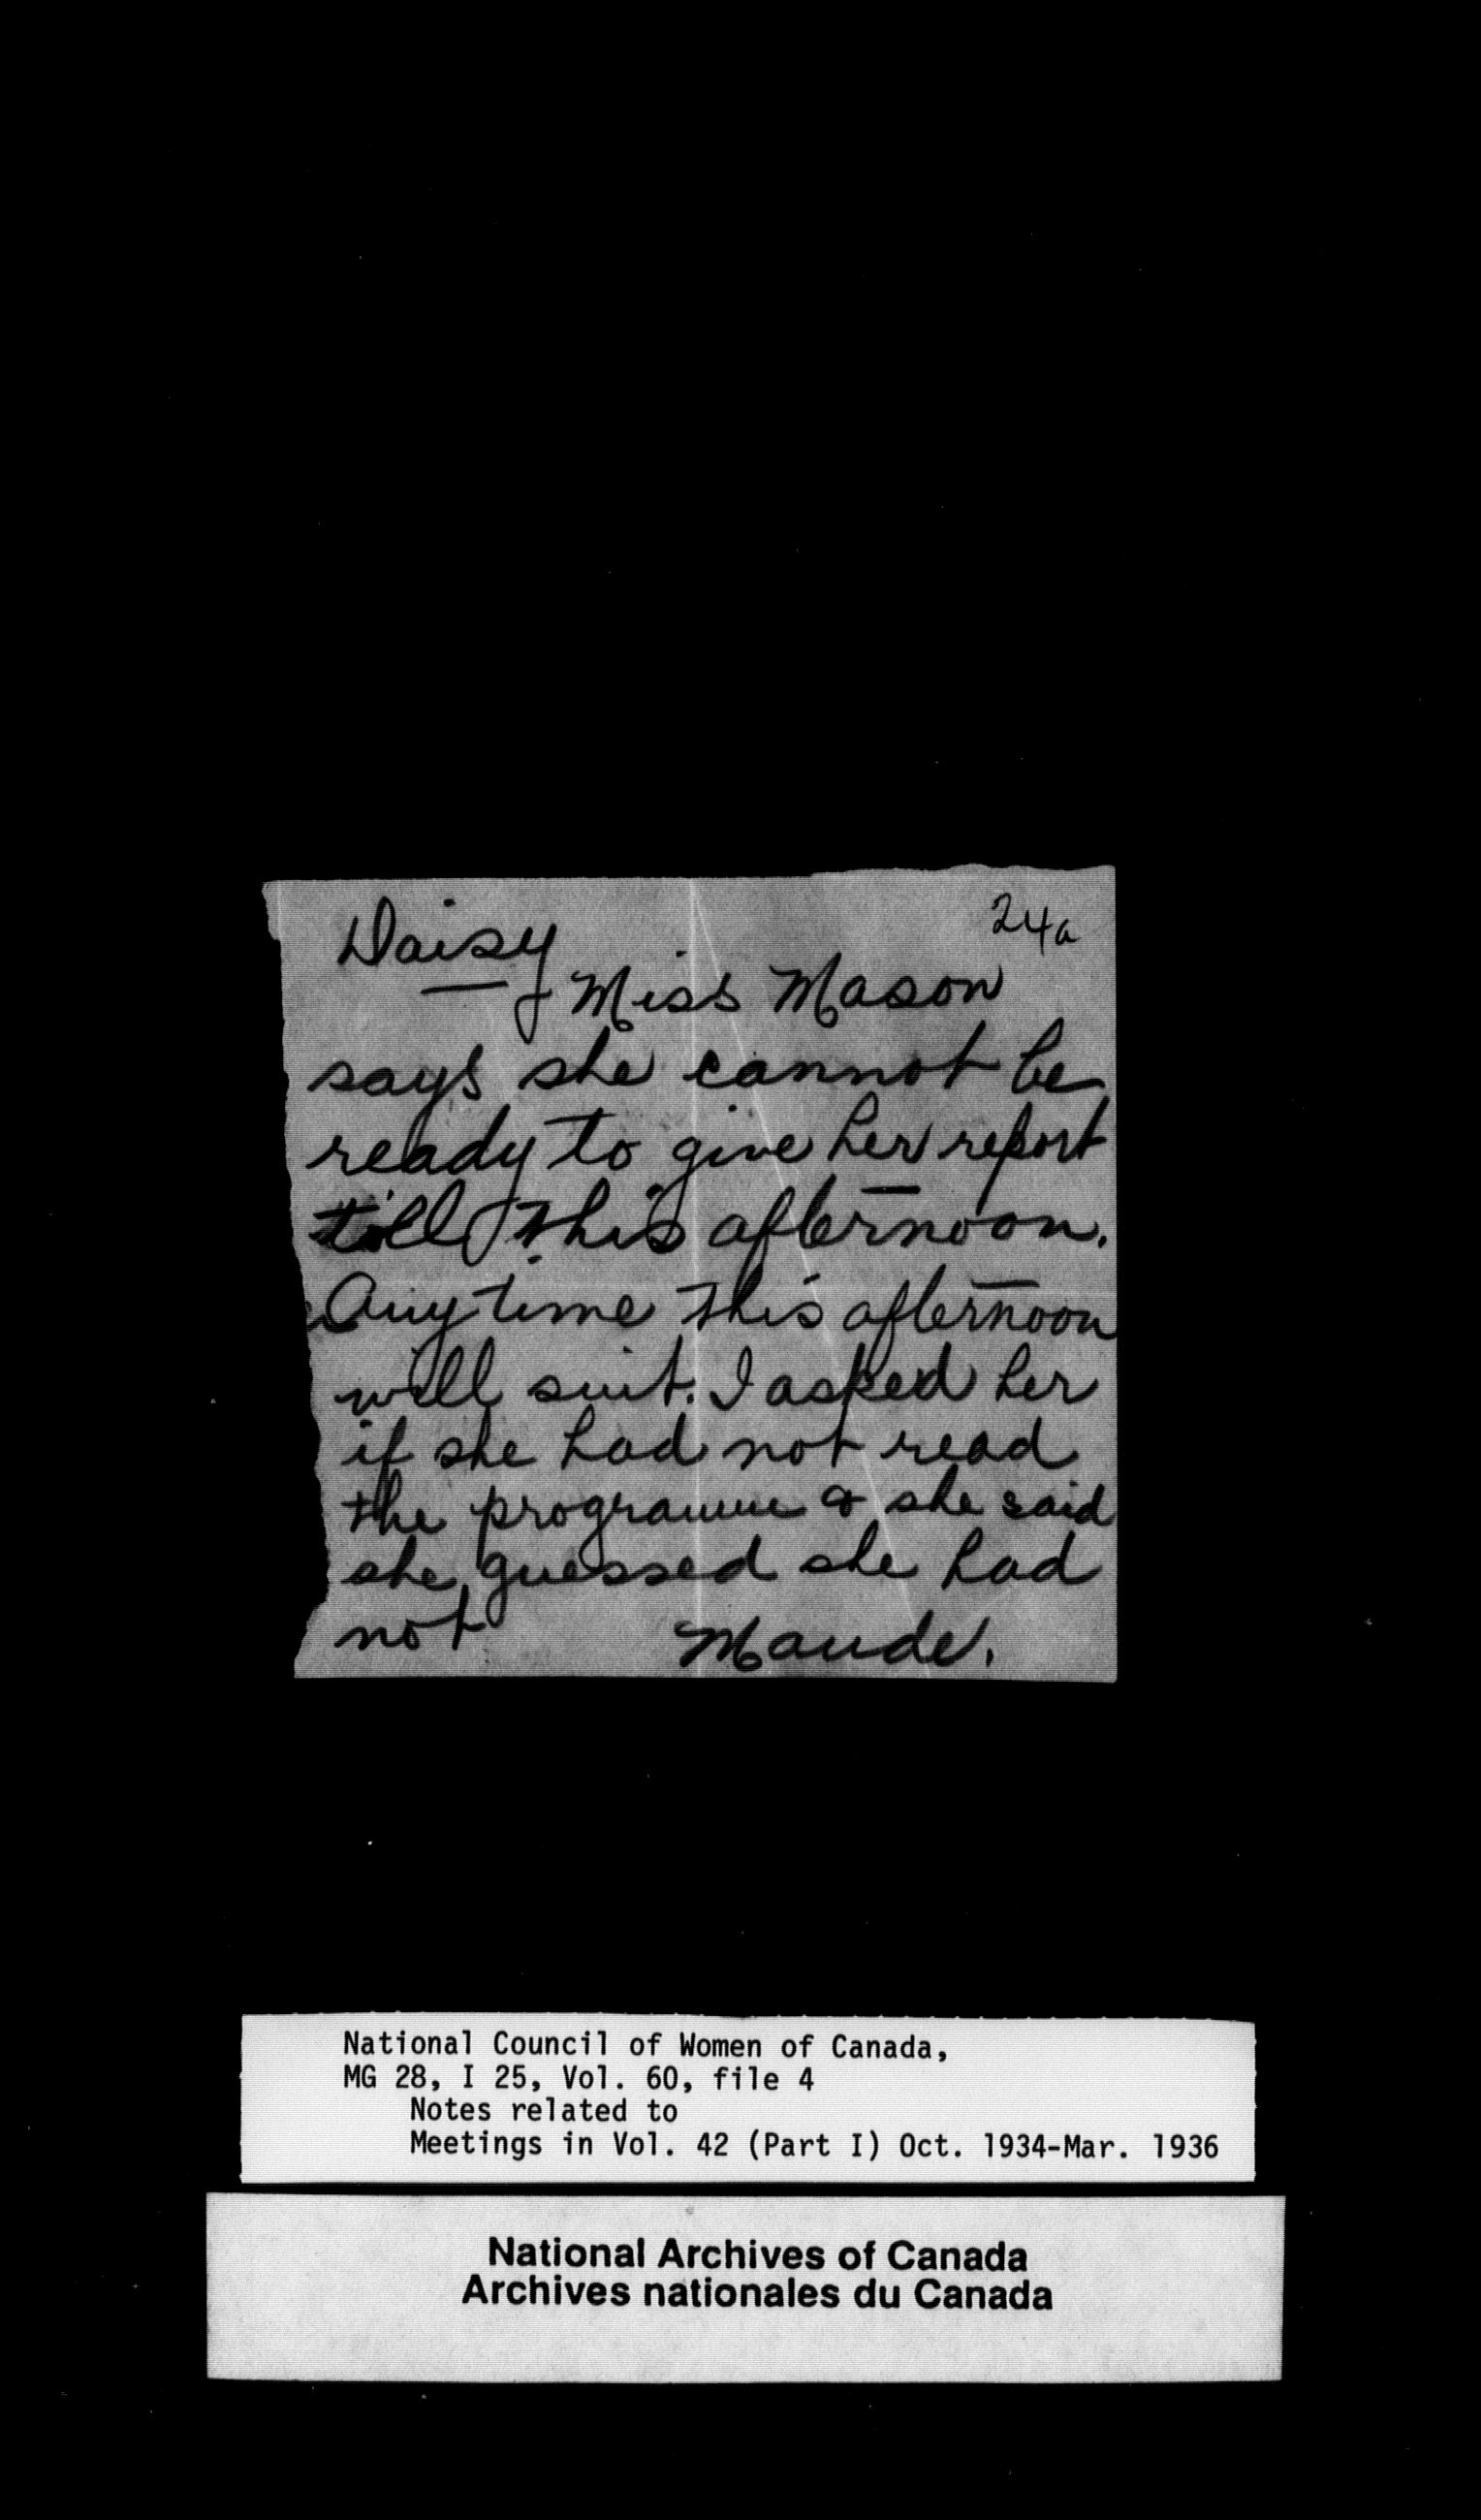 24a
Daisy
Miss Mason
says she cannot be
ready to give her report
till this afternoon.
Any time this afternoon
will suit. I asked her
if she had not read
the programme & she said
she guessed she had
not Maude.
National Council of Women of Canada,
MG 28, I 25, Vol. 60, file 4
Notes related to
Meetings in Vol. 42 (Part I) Oct. 1934-Mar. 1936
National Archives of Canada
Archives nationales du Canada